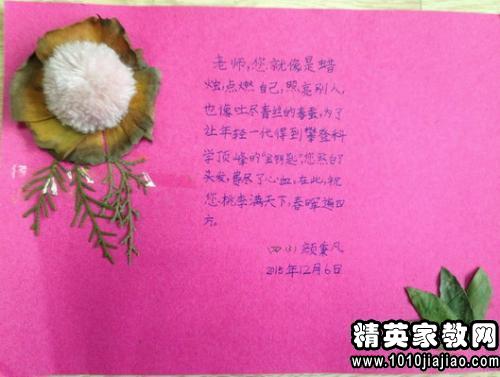 老师,您就像是蜡
烛,点燃自己,照亮别人,
也像吐尽青丝的春蚕,为了
让年轻一代得到攀登科
学顶峰的"金钥匙",您熬白了
头发,费尽了心血,在此,祝
您桃李满天下,春晖遍四
方。
四小 颜 凡
2015年12月6日
精英家教网
www.1010jiajiao.com